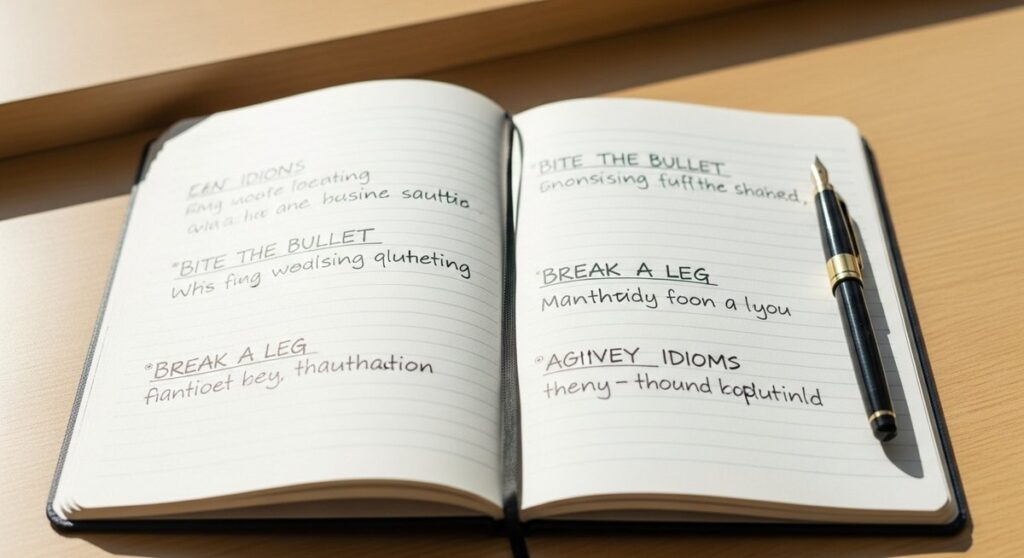 EEN IDIONS
busine sautio
*BITE THE BULLET
Whis fing wodlsing qluheting
*BREAK A LEG
fiantioet bey, thauthadtion
*BITE THE BULLET
Gnonsising fuffthe shahed,
*BREAK A LEG
Manthtidy foon a lyou
*AGIIVEY IDIOMS
theny - thound koplutinld